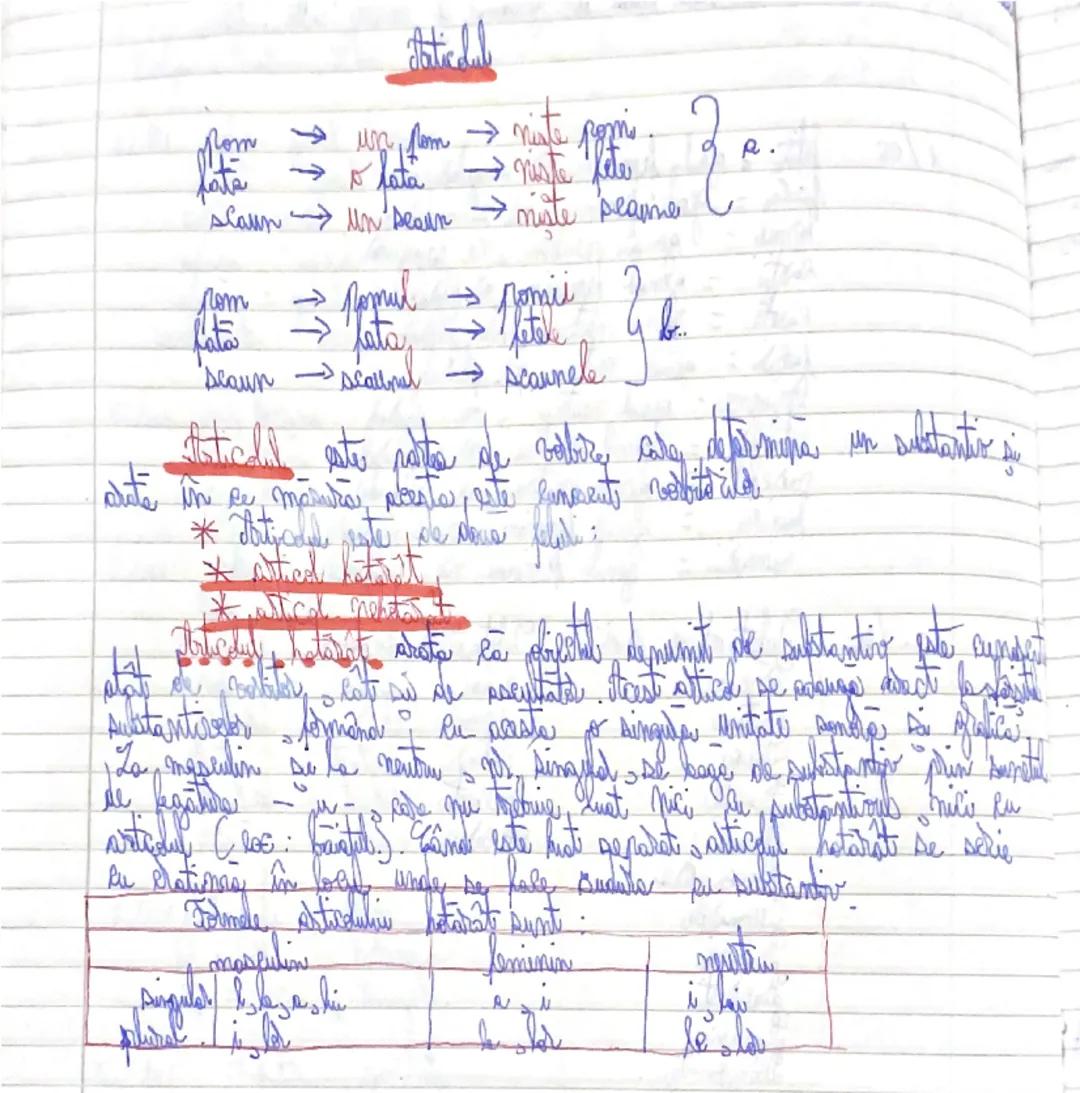 Articolul
pom → un pom → niște pomi.
fată → o fată → niște fete
scaun → un scaun → niște scaune
a.
pom → pomul → pomii
fată → fata → fetele
scaun → scaunul → scaunele
b.
Articolul este partea de vorbire care determină un substantiv și
arată în ce măsură acesta este cunoscut vorbitorilor
* Articolul este de două feluri:
* articol hotărât
* articol nehotărât
Articolul hotărât arată că obiectul denumit de substantiv este cunoscut
atât de vorbitor, cât și de ascultător. Acest articol se adaugă direct la sfârșitul
substantivelor, formând cu acesta o singură unitate sonoră și grafică.
La masculin și la neutru, nr. singular, se leagă de substantiv prin sunetul
de legătura - u -, care nu trebuie luat nici cu substantivul, nici cu
articolul (ex: băiatul). Când este luat separat, articolul hotărât se scrie
cu cratimă în locul unde se face sudura cu substantiv.
Formele articolului hotărât sunt:
masculin feminin neutru
singular l, le, a, lui a, i i, lui
plural. i, lor le, lor le, lor